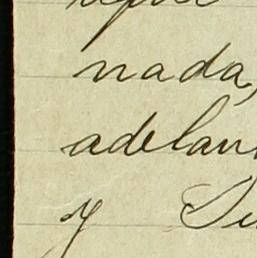 nada,
adelan
y Su